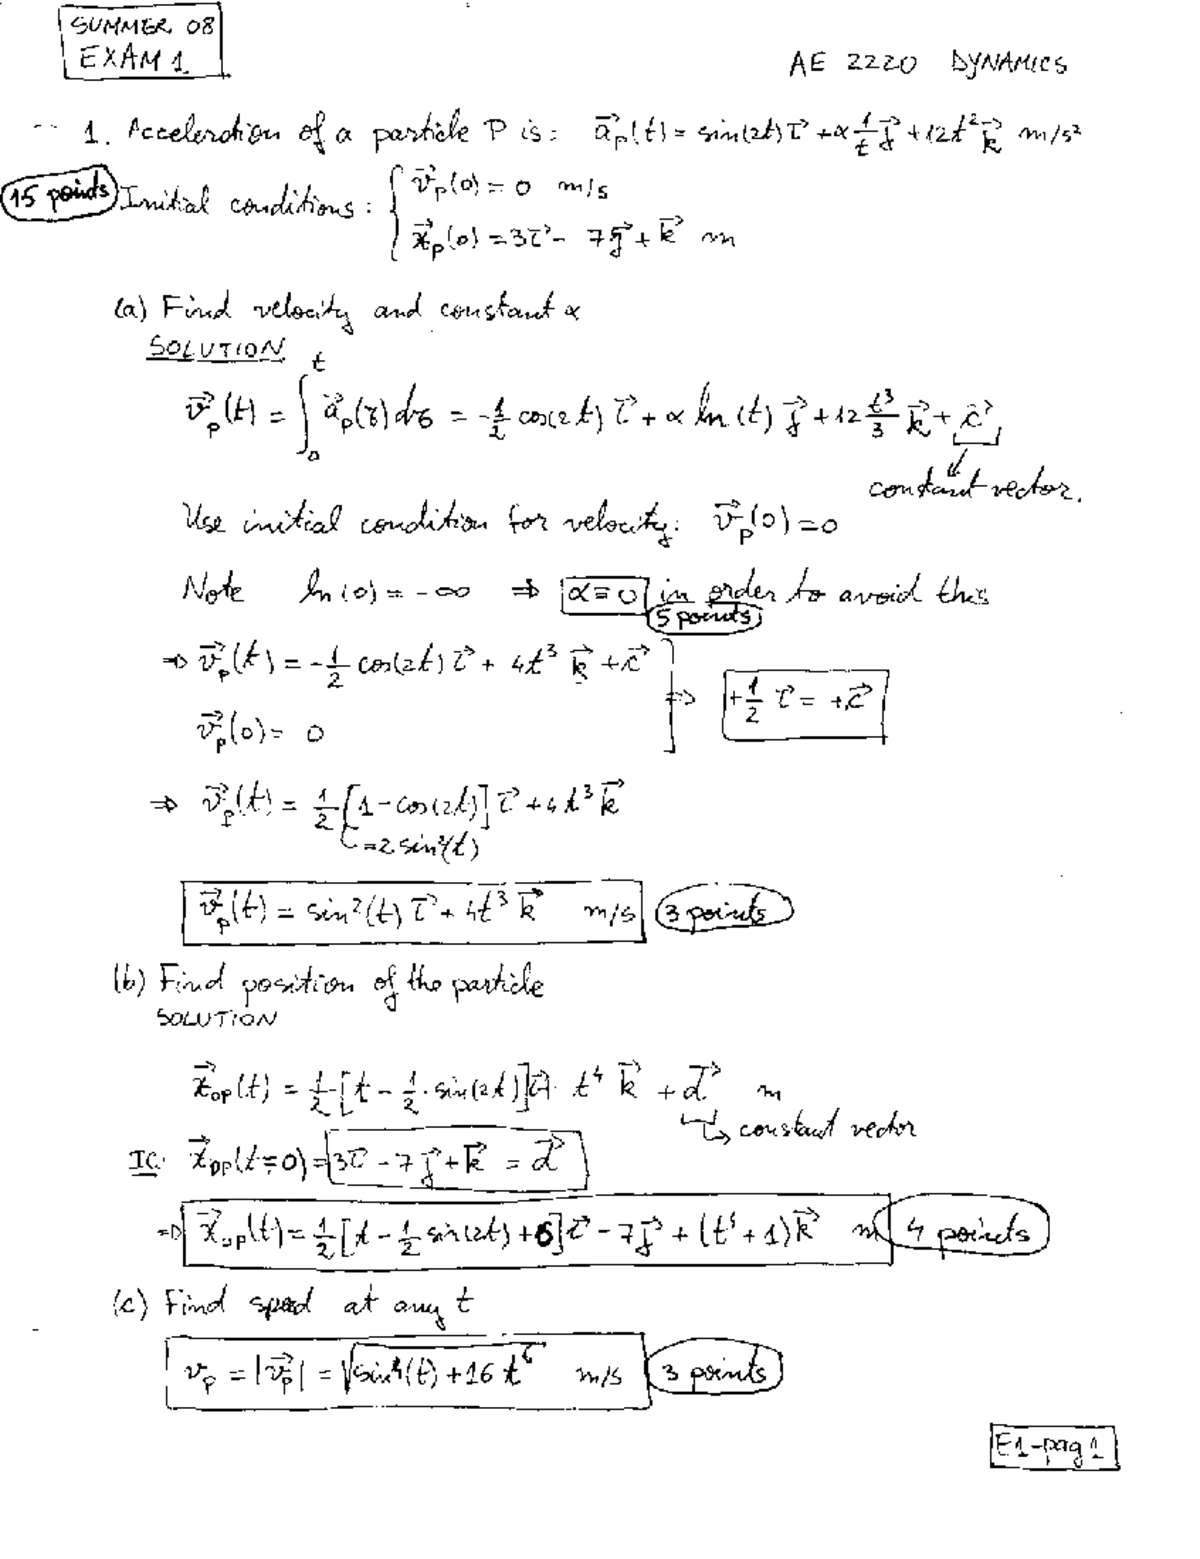 SUMMER 08
EXAM 1
AE 2220 DYNAMICS
1. Acceleration of a particle P is: a⃗p(t) = sin(2t) i⃗ + α 1/t j⃗ + 12t² k⃗ m/s²
15 points
Initial conditions: { v⃗p(0) = 0 m/s
x⃗p(0) = 3i⃗ - 7j⃗ + k⃗ m
(a) Find velocity and constant α
SOLUTION
v⃗p(t) = ∫₀ᵗ a⃗p(τ) dτ = -1/2 cos(2t) i⃗ + α ln(t) j⃗ + 12 t³/3 k⃗ + c⃗
constant vector.
Use initial condition for velocity: v⃗p(0) = 0
Note ln(0) = -∞ ⇒ α = 0 in order to avoid this
5 points
⇒ v⃗p(t) = -1/2 cos(2t) i⃗ + 4t³ k⃗ + c⃗ ] ⇒ +1/2 i⃗ = +c⃗
v⃗p(0) = 0
⇒ v⃗p(t) = 1/2 [1 - cos(2t)] i⃗ + 4t³ k⃗
= 2 sin²(t)
v⃗p(t) = sin²(t) i⃗ + 4t³ k⃗ m/s 3 points
(b) Find position of the particle
SOLUTION
x⃗op(t) = 1/2 [t - 1/2 · sin(2t)] i⃗ + t⁴ k⃗ + d⃗ m
constant vector
IC: x⃗op(t=0) = 3i⃗ - 7j⃗ + k⃗ = d⃗
⇒ x⃗op(t) = 1/2 [t - 1/2 sin(2t) + 6] i⃗ - 7j⃗ + (t⁴ + 1) k⃗ m 4 points
(c) Find speed at any t
vp = |v⃗p| = √(sin⁴(t) + 16 t⁶) m/s 3 points
E1-pag 1